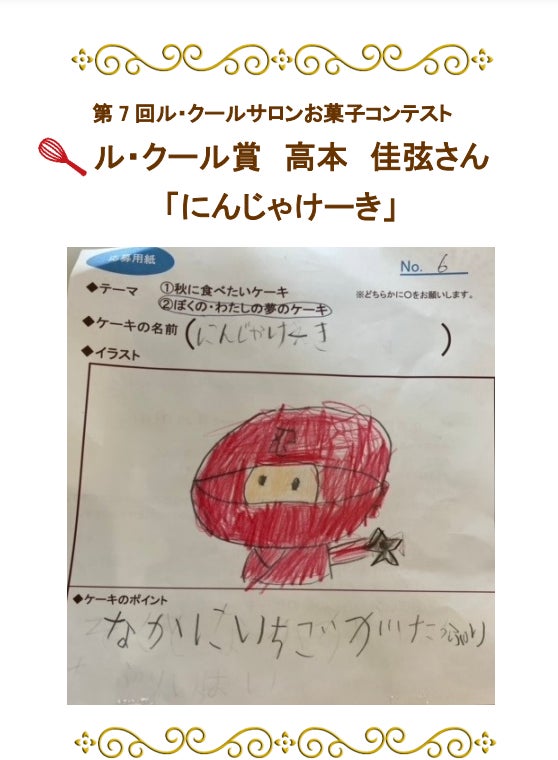 第7回ル・クールサロンお菓子コンテスト
ル・クール賞 高本 佳弦さん
「にんじゃけーき」
応募用紙
No. 6
◆テーマ ①秋に食べたいケーキ
②ぼくの・わたしの夢のケーキ
※どちらかに○をお願いします。
◆ケーキの名前 (にんじゃけーき)
◆イラスト
◆ケーキのポイント
なかにいちごがたっぷり